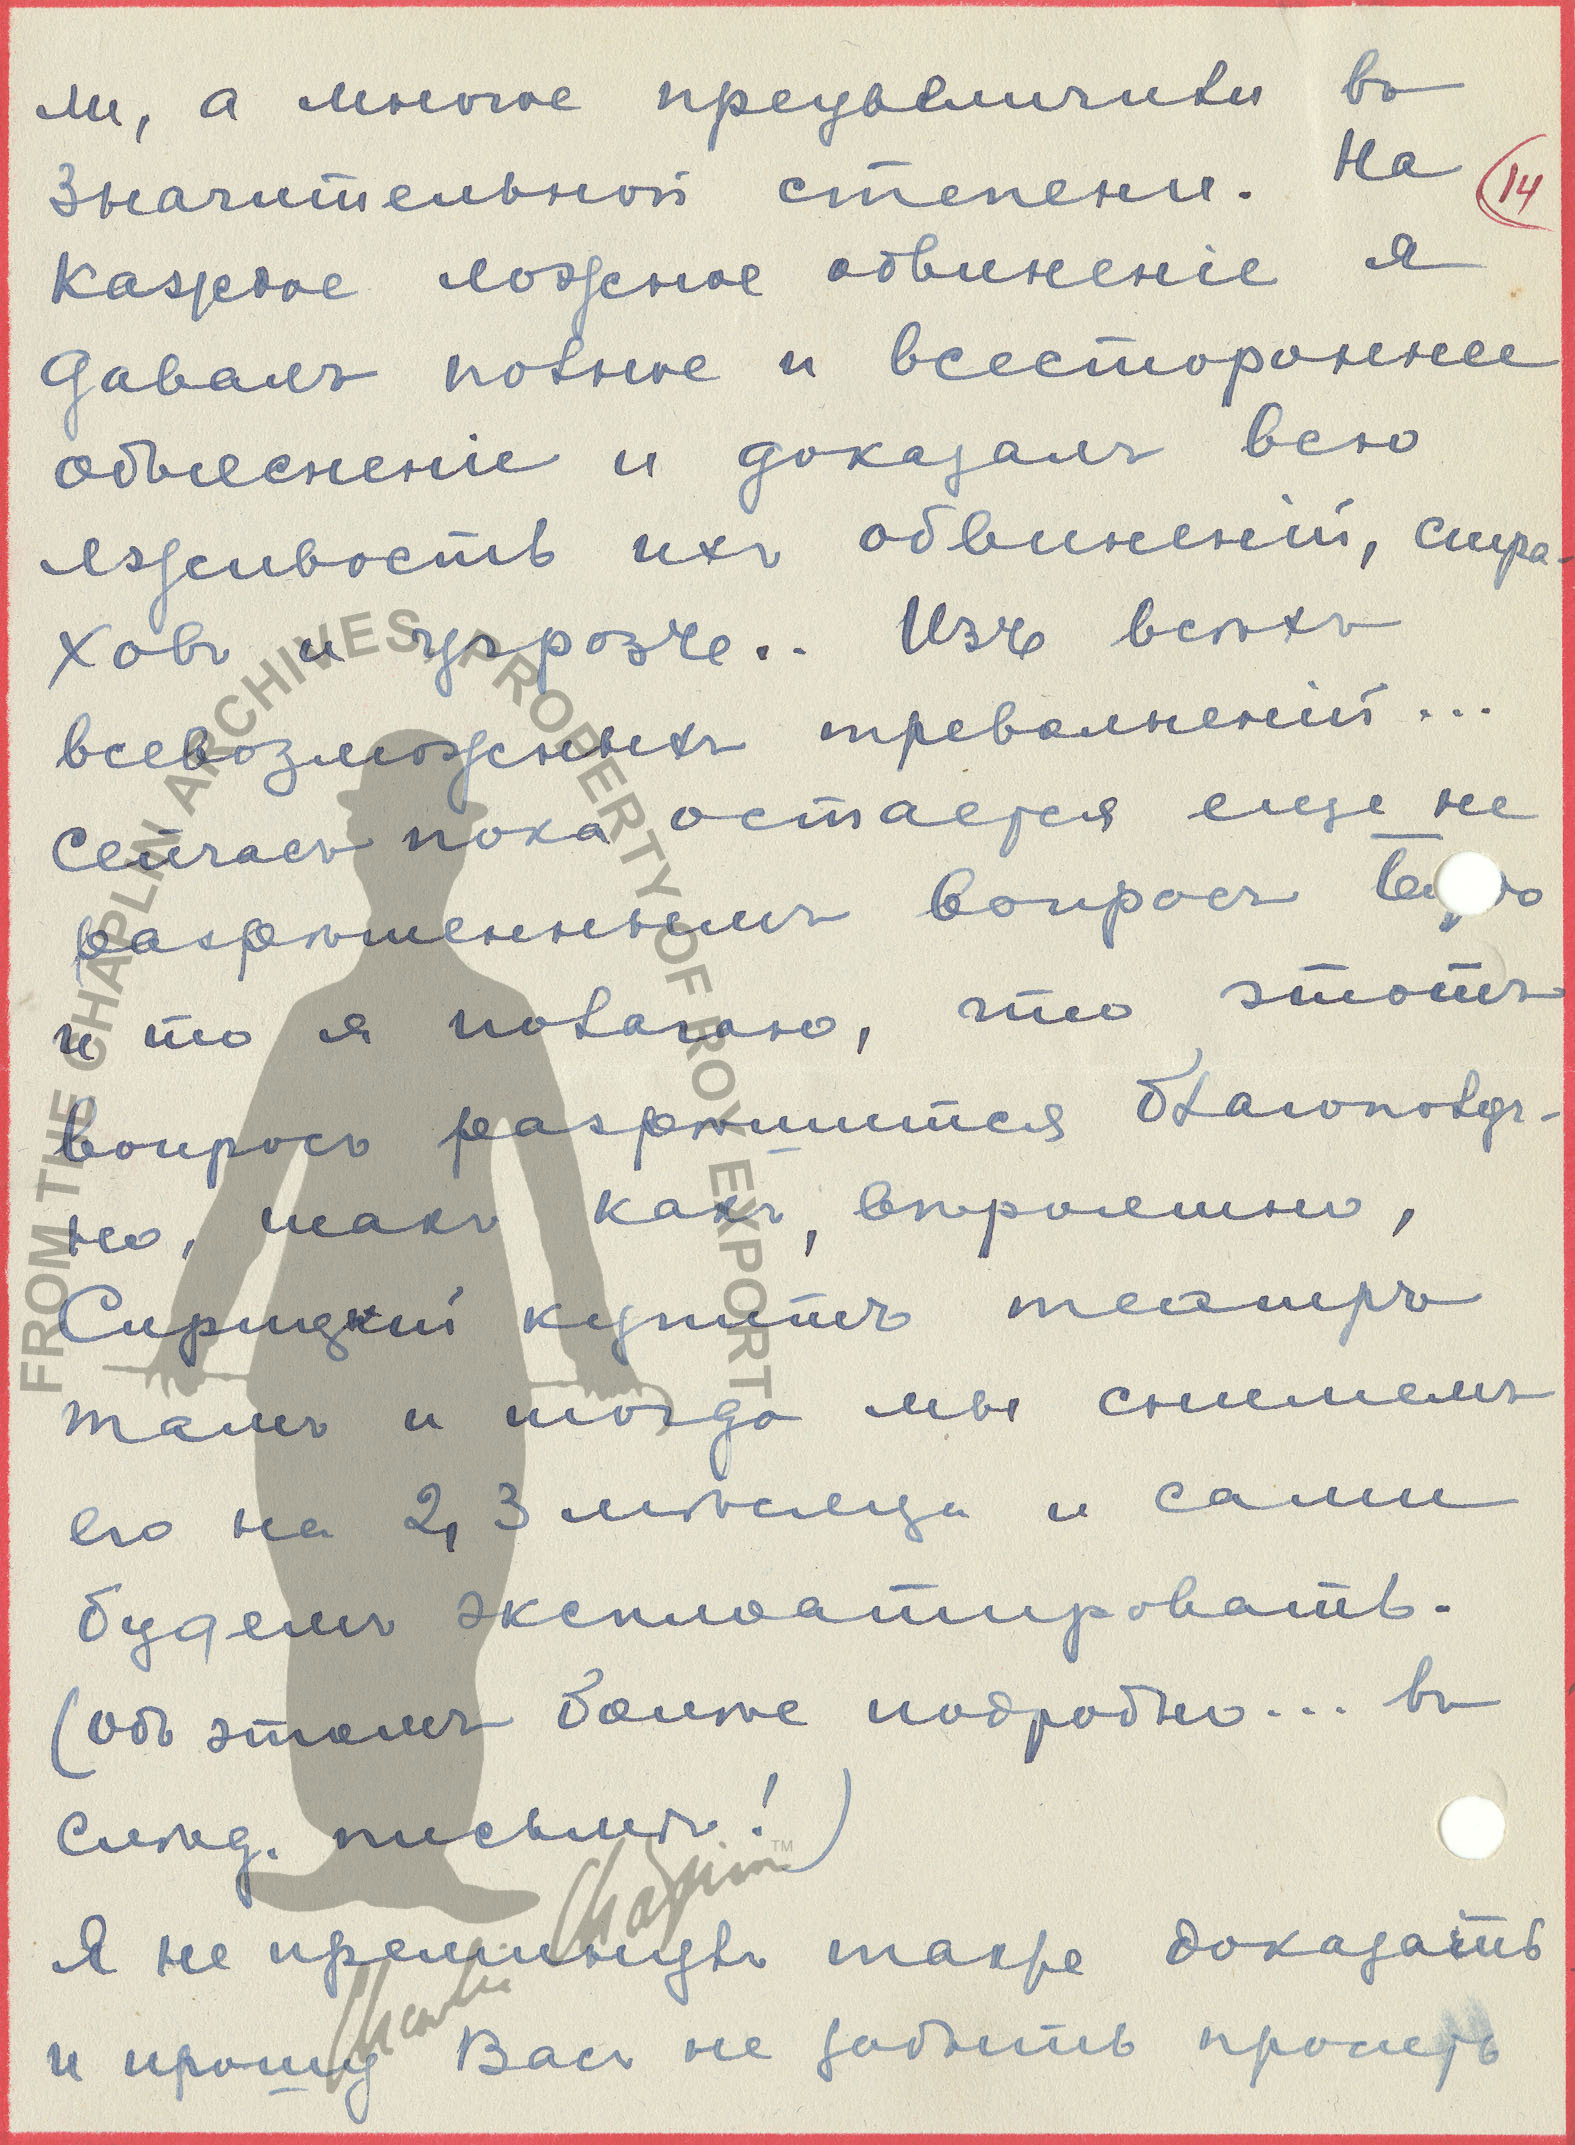 ли, а многое преувеличили въ
значительной степени. На
14
каждое ложное обвиненіе я
давалъ полное и всестороннее
объясненіе и доказалъ всю
лживость ихъ обвиненій, стра-
ховъ и угрозъ.. Изъ всѣхъ
всевозможныхъ треволненій...
сейчасъ пока остается еще не
разрѣшеннымъ вопросъ
и то я полагаю, что этотъ
вопросъ разрѣшится благополуч-
но, такъ какъ, вѣроятно,
Сирицкій купитъ театръ
тамъ и тогда мы снимемъ
его на 2, 3 мѣсяца и сами
будемъ эксплоатировать.
(Объ этомъ болѣе подробно... въ
слѣд. письмѣ!)
Я не преминулъ также доказать
и прошу Васъ не забыть прочесть
FROM THE CHAPLIN ARCHIVES, PROPERTY OF ROY EXPORT
Charlie Chaplin™